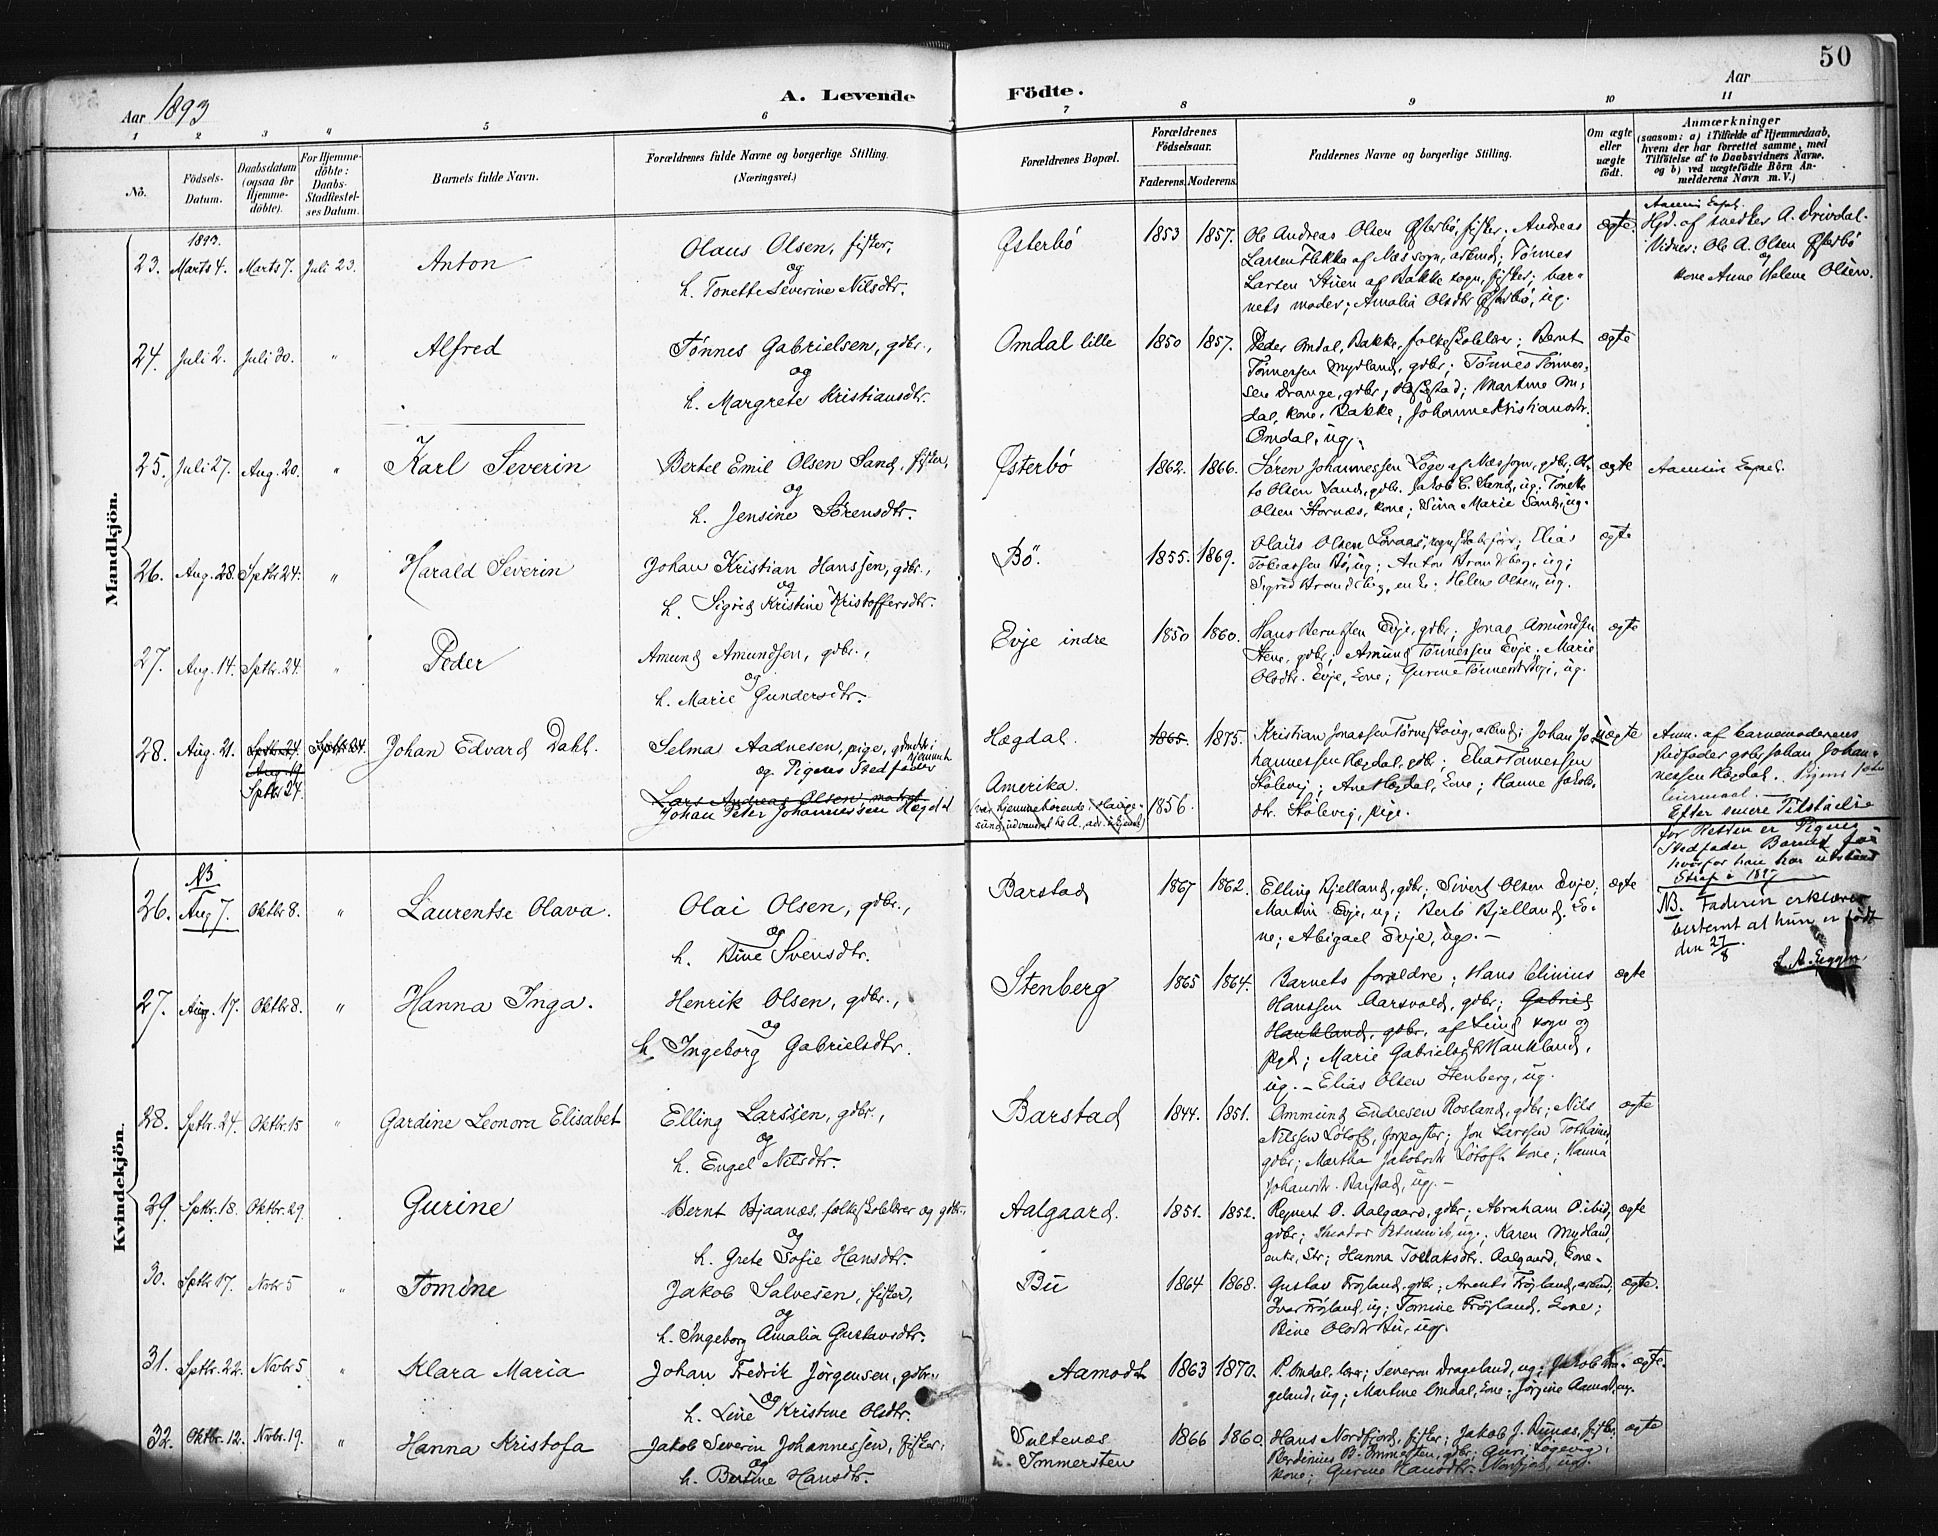 50
Aar 1893
A. Levende Födte.
Aar
1 2 3 4 5 6 7 8 9 10 11
No.
Födsels-Datum.
Daabsdatum (ogsaa for Hjemme-döbte).
For Hjemme-döbte: Daabs-Stadfæstel-ses Datum.
Barnets fulde Navn.
Forældrenes fulde Navne og borgerlige Stilling.
(Næringsvei.)
Forældrenes Bopæl.
Forældrenes Födselsaar.
Faderens. Moderens.
Faddernes Navne og borgerlige Stilling.
Om ægte eller uægte födt.
Anmærkninger
(saasom: a) i Tilfælde af Hjemmedaab, hvem der har forrettet samme, med Tilföielse af to Daabsvidners Navne, og b) ved uægtefödte Börn An-melderens Navn m. V.)
Mandkjön.
1893.
23. Marts 4. Marts 7. Juli 23. Anton
Olaus Olsen, fisker,
og
h. Tonette Severine Nilsdtr.
Østerbö 1853 1857.
Ole Andreas Olsen Østerbö, fisker; Andreas
Larsen Flikka af Næs sogn, arbeid; Tønnes
Larsen Stuen af Bakke sogn, fisker; bar-
nets moder; Amalia Olsdtr Østerbö, ug.
ægte.
Hjd. af snedker A. Drivdal.
Vidner: Ole A. Olsen Østerbö
og
kone Anne Helene Olsen.
24. Juli 2. Juli 30. " Alfred
Tønnes Gabrielsen, gdbr.,
og
h. Margrete Kristiansdtr.
Omdal lille 1850 1857.
Peder Omdal, Bakke, folkeskolelærer; Bernt
Tønnessen Mydland, gdbr; Tønnes Tønnes-
sen Drange, gdbr, ; Martine Om-
dal, kone, Bakke; Johanne Kristiansdtr.
Omdal, ug.
ægte
25. Juli 27. Aug. 20. " Karl Severin
Bertel Emil Olsen Sand, fisker,
og
h. Jensine Sörensdtr.
Østerbö 1862. 1866.
Sören Johannessen Loge af Næs sogn, gdbr; Ot-
to Olsen Sand, gdbr. Jakob C. Sand, ug. Tonette
Olsen Stornæs, kone; Sina Marie Sand, ug.
ægte
26. Aug. 28. Septbr 24. " Harald Severin
Johan Kristian Hanssen, gdbr.,
og
h. Sigrid Kristine Kristoffersdtr.
Bö. 1855. 1869.
Olaus Olsen Lovaas, ; Elias
Tobiassen Bö, ug; Anton Strandberg, ug;
Sigrid Strandberg, enke; Helene Olsen, ug.
ægte
27. Aug. 14. Septbr. 24. " Peder
Amund Amundsen, gdbr.,
og
h. Marie Gundersdtr.
Evje indre 1850 1860.
Hans Berntsen Evje, gdbr; Jonas Amundsen
Stene, gdbr; Amund Tönnessen Evje. Marie
Olsdtr. Evje, kone; Gurine Tönnesdtr Evje, ug.
ægte
28. Aug. 21. Septbr. 24 Aug. 19 Septbr 24. Septbr 24. Johan Edvard Dahl.
Selma Aadnesen, pige,
og Pigens Stedfader
Lars Andreas Olsen, matros
Johan Peter Johannessen Hægdal
Hægdal.
Amerika.
1865. 1875.
1856.
Kristian Jonassen Törneskoug, arbeid; Johan Jo-
hannessen Hægdal, gdbr; Elias Tönnessen
Stölevig; Ane Hægdal, kone; Hanne Jakobs-
dtr. Stölevig, pige.
uægte
Anm. af barnemoderens
stedfader gdbr. Johan Johan-
nessen Hægdal.
leiermaal.
Efter senere Tilstaaelse
for Retten er Pigens
Stedfader Barnets far
hvorfor han har utstaaet
Straf i 1897
Kvindekjön.
NB
26. Aug 7. Oktbr 8. " Laurentse Olava.
Olai Olsen, gdbr.,
og
h. Bine Svensdtr.
Barstad 1867 1862.
Elling Kjelland, gdbr; Sivert Olsen Evje;
Martin Evje, ug; Berte Kjelland, ko-
ne; Abigael Evje, ug. -
ægte
NB. Faderen erklærer
bestemt at hun er född
den 27/8.
27. Aug. 17. Oktbr 8. " Hanna Inga.
Henrik Olsen, gdbr.,
og
h. Ingeborg Gabrielsdtr.
Stenberg 1865 1864.
Barnets forældre; Hans Elinius
Hanssen Aarsvold, gdbr; Gabriel
Haukland, gdbr. af Lund sogn og
pgd; Marie Gabrielsdtr Haukland,
ug. - Elias Olsen Stenberg, ug.
ægte
28. Septbr. 24. Oktbr. 15 " Gardine Leonora Elisabet
Elling Larssen, gdbr.,
og
h. Engel Nilsdtr.
Barstad 1844. 1851.
Ammund Endresen Rosland, gdbr; Nils
Nilssen Lötoft, forpagter; Jon Larssen
gdbr; Martha Jakobsdtr Lötoft kone; Hanna
Johansdtr. Barstad, ug. -
ægte
29. Septbr. 18. Oktbr. 29. Gurine
Bernt Bjaanæs, folkeskolelærer og gdbr.,
og
h. Grete Sofie Hansdtr.
Aalgaard. 1851. 1852.
Reinert O. Aalgaard, gdbr; Abraham O. ibid,
gdbr; Theodor ; Karen Mydland,
enke, Str; Hanna Tollaksdtr. Aalgaard, kone.
ægte
30. Septbr 17. Novbr 5 " Tomine
Jakob Salvesen, fisker,
og
h. Ingeborg Amalia Gustavsdtr.
Bu 1864 1868.
Gustav Fröyland, gdbr; Arents Fröyland, arbeid,
Ivar Fröyland, ug; Tomine Fröyland, kone;
Bine Olsdtr Bu, ug.
ægte.
31. Septbr. 22. Novbr 5 " Klara Maria
Johan Fredrik Jörgensen, gdbr.,
og
h. Line Kristine Olsdtr.
Aamodt 1863 1870.
P. Omdal, lærer; Severin Drageland, ug; Jakob Dra-
geland, ug; Martine Omdal, kone; Jörgine Aamodt, ug.
ægte.
32. Oktbr. 12. Novbr. 19. " Hanna Kristofa
Jakob Severin Johannessen, fisker,
og
h. Bertine Hansdtr.
Sultenæs
Immersten
1866 1860.
Hans Nordfjord, fisker; Jakob J. Runas, fisker,
Berdinius B. Immersten, gdbr; Guri Logevig,
kone; Gurine Hansdtr. Nordfjord, ug.
ægte